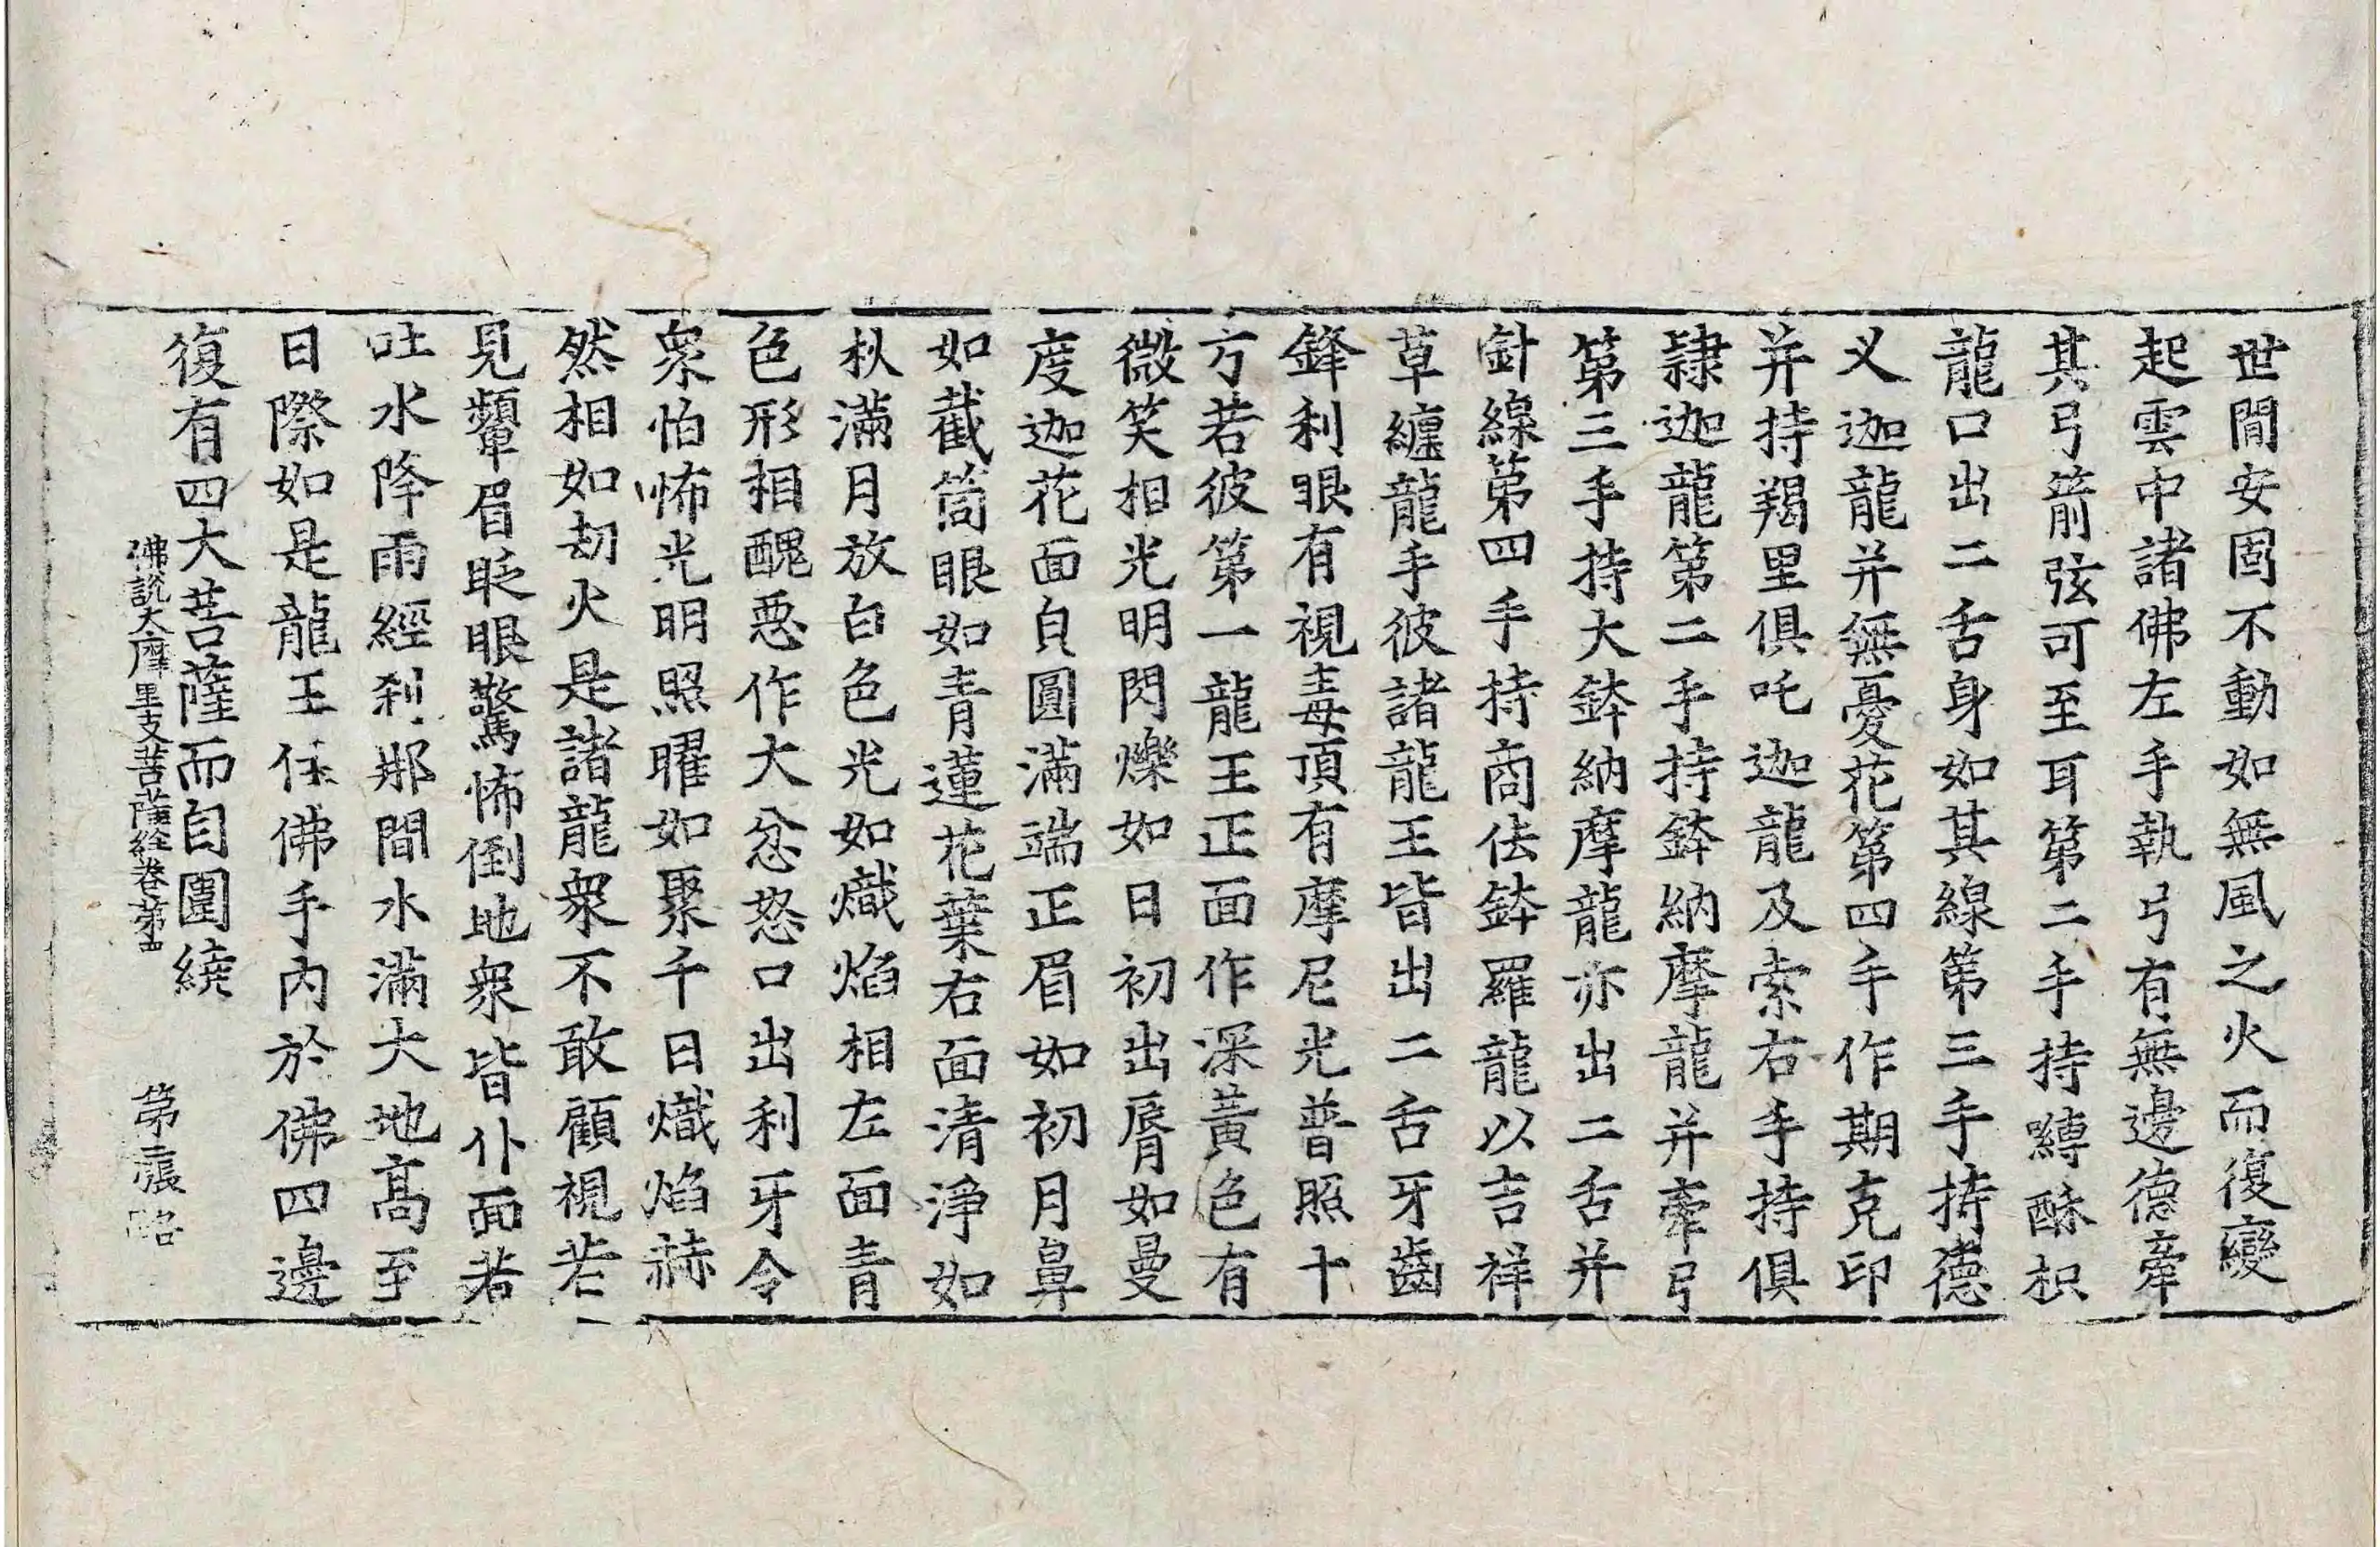 世間安固不動如無風之火而復變
起雲中諸佛左手執弓有無邊德牽
其弓箭弦可至耳第二手持嚩酥枳
龍口出二舌身如其線第三手持德
义迦龍并無憂花第四手作期克印
并持羯里俱吒迦龍及索右手持俱
隷迦龍第二手持鉢納摩龍并牽弓
第三手持大鉢納摩龍亦出二舌并
針線第四手持商佉鉢羅龍以吉祥
草纏龍手彼諸龍王皆出二舌牙齒
鋒利眼有視毒頂有摩尼光普照十
方若彼第一龍王正面作深黃色有
微笑相光明閃爍如日初出脣如曼
度迦花面貟圓滿端正眉如初月鼻
如截筒眼如青蓮花葉右面清淨如
秋滿月放白色光如熾焰相左面青
色形相醜惡作大忿怒口出利牙令
衆怕怖光明照曜如聚千日熾焰赫
然相如劫火是諸龍衆不敢顧視若
見顰眉眨眼驚怖倒地衆皆仆面若
吐水降雨經刹那間水滿大地高至
日際如是龍王任佛手內於佛四邊
復有四大菩薩而自圍繞
佛說大摩里支菩薩經卷第五
第三張 路